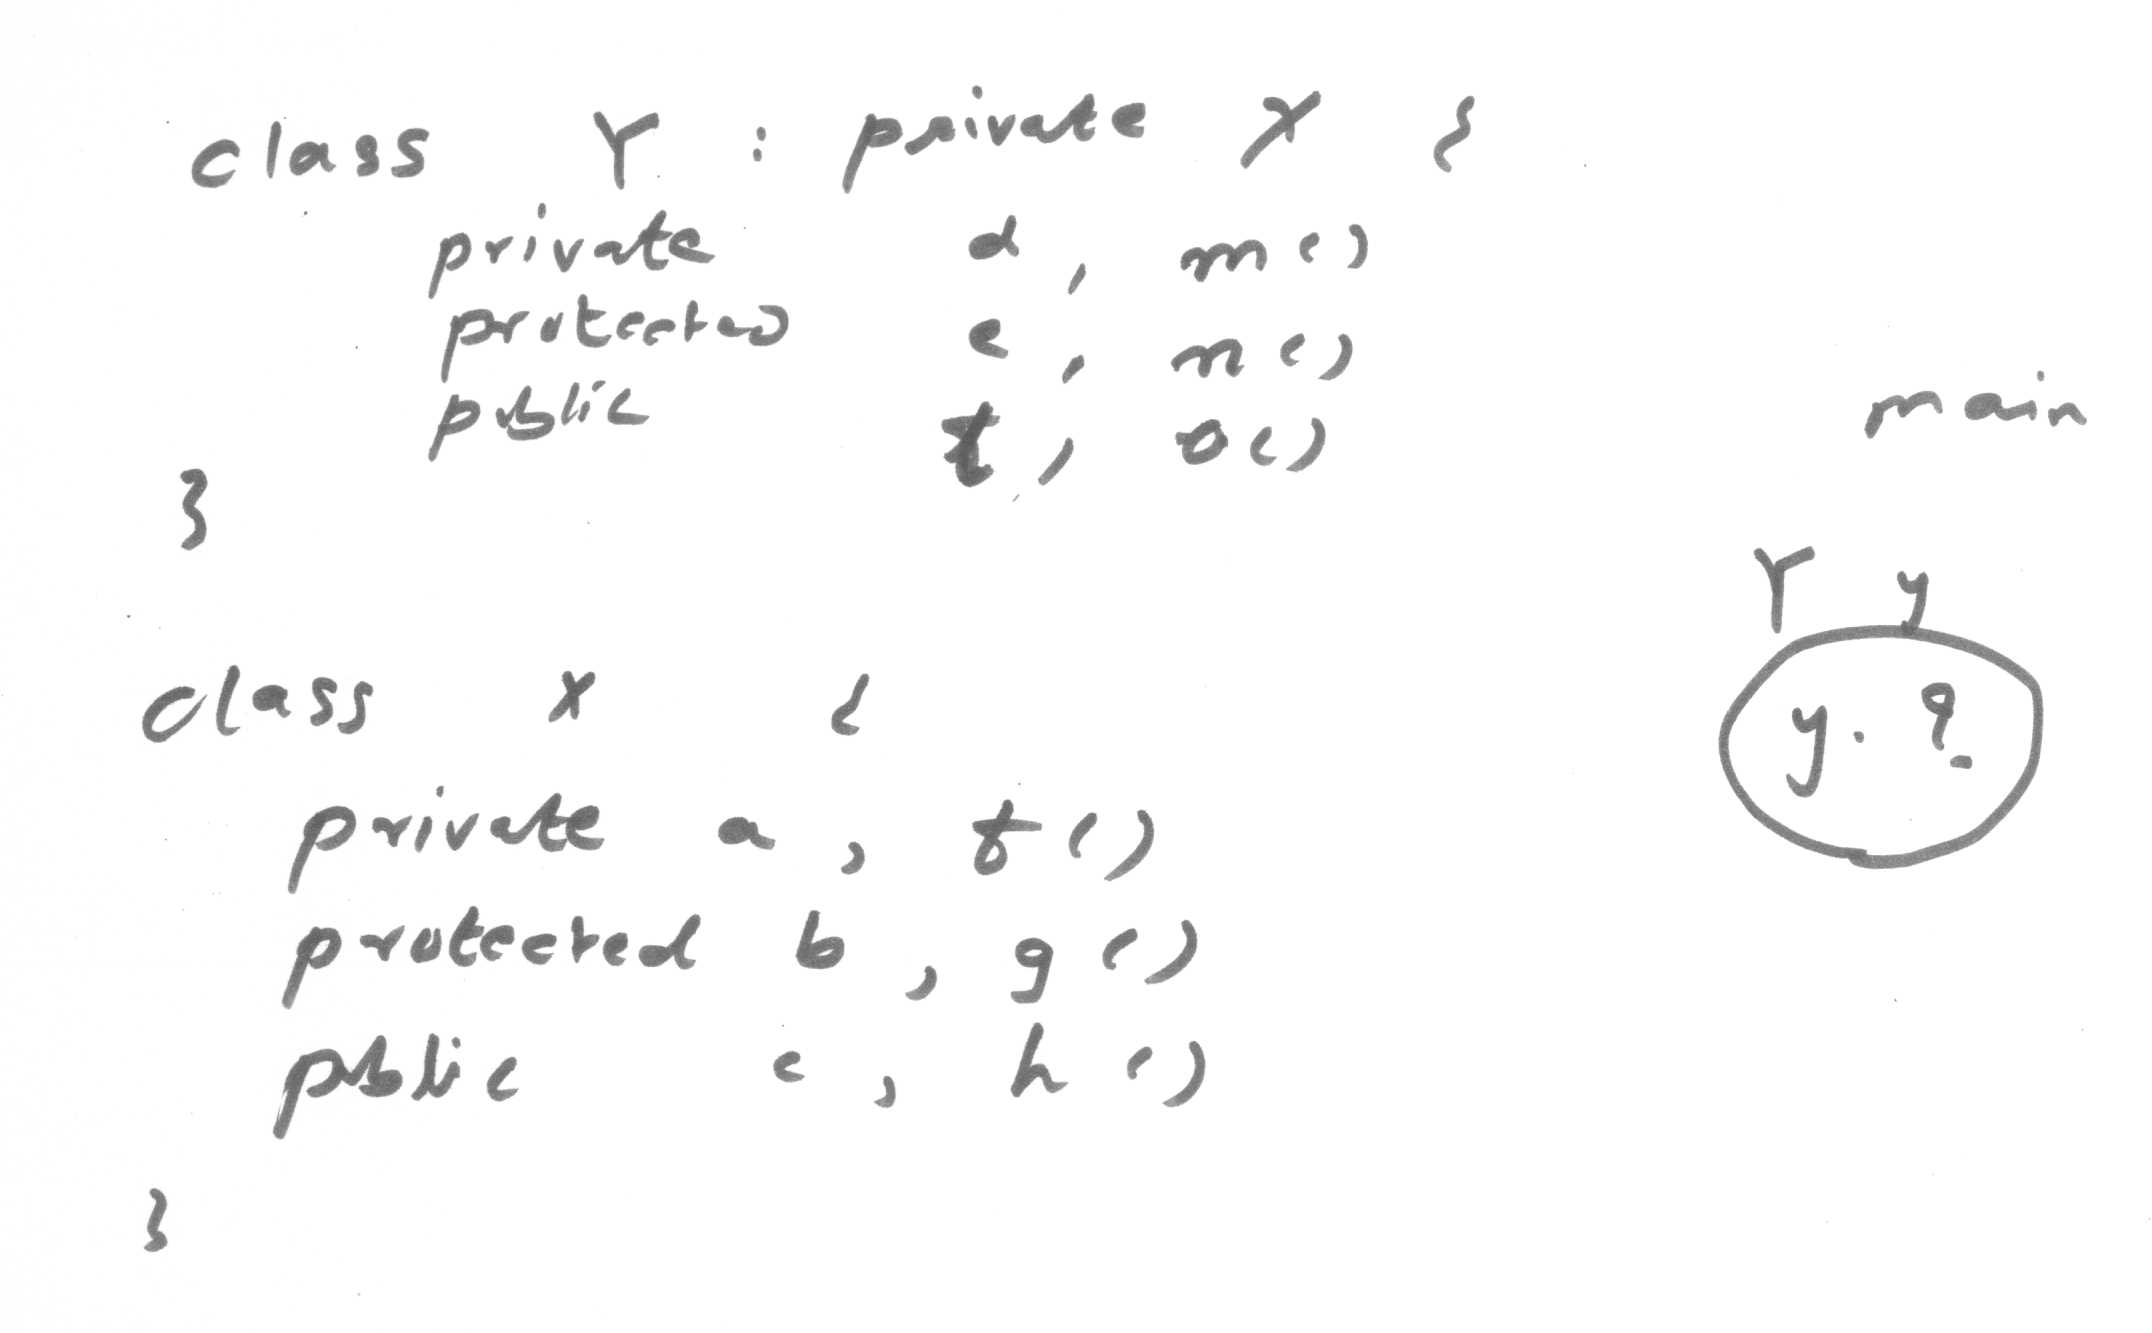 class Y : private X {
private d, m()
protected e, n()
public t, o()
}
main
Y y
y. ?
class X {
private a, f()
protected b, g()
public c, h()
}